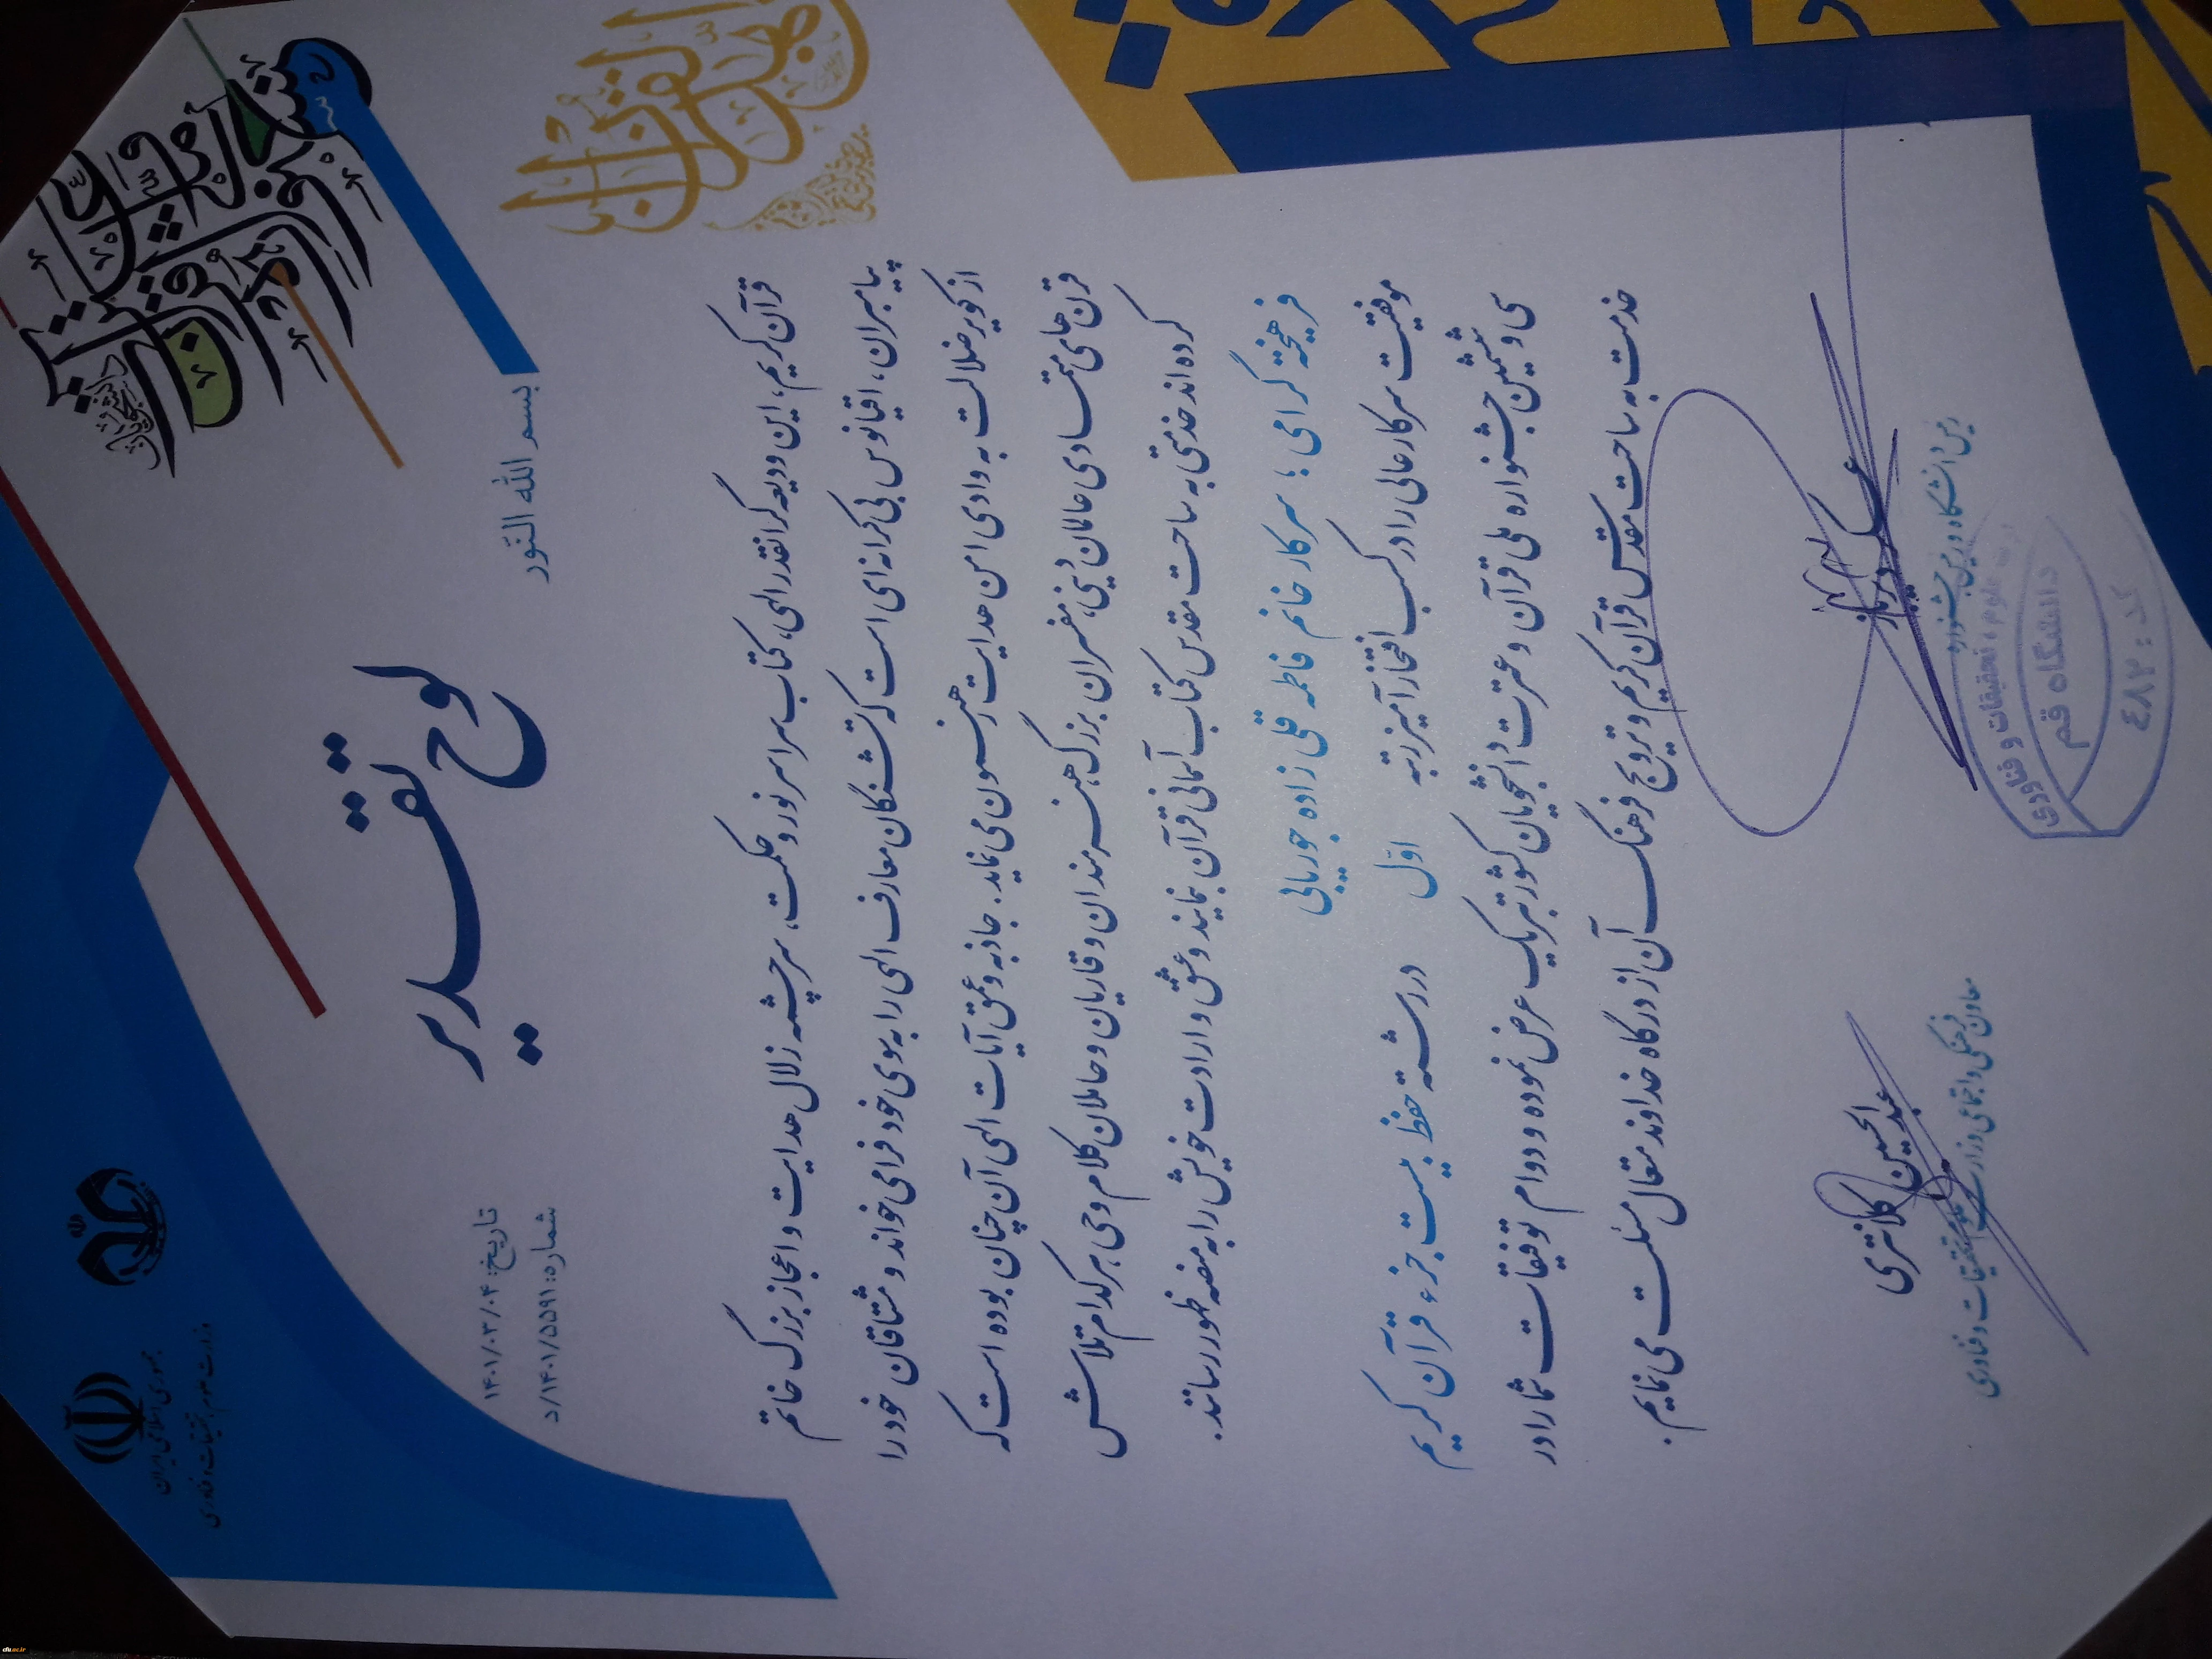 جمهوری اسلامی ایران
وزارت علوم، تحقیقات و فناوری
تاریخ: ۱۴۰۱/۰۳/۰۴
شماره: ۱۴۰۱/۵۵۹۱/د
لوح تقدیر
بسم الله النّور
قرآن کریم، این ودیعه گرانقدر الهی، کتاب سراسر نور و حکمت، سرچشمه زلال هدایت و اعجاز بزرگ خاتم
پیامبران، اقیانوس بی کرانه ای است که تشنگان معارف الهی را به سوی خود فرا می خواند و مشتاقان خود را
از کویر ضلالت به وادی امن هدایت رهنمون می نماید. جاذبه و عمق آیات الهی آن چنان بوده است که
قرن های متمادی عالمان دینی، مفسران بزرگ، هنرمندان و قاریان و حاملان کلام وحی هر کدام تلاش
کرده اند خدمتی به ساحت مقدس کتاب آسمانی قرآن بنمایند و عشق و ارادت خویش را به منصه ظهور رسانند.
فرهیخته گرامی؛ سرکار خانم فاطمه قلی زاده جوریابی
موفقیت سرکار عالی را در کسب افتخارآمیز رتبه اوّل در رشته حفظ بیست جزء قرآن کریم
سی و ششمین جشنواره ملی قرآن و عترت دانشجویان کشور تبریک عرض نموده و دوام توفیقات شما را در
خدمت به ساحت مقدس قرآن کریم و ترویج فرهنگ آن از درگاه خداوند متعال مسئلت می نمایم.
عبدالحسین کلانتری
معاون فرهنگی و اجتماعی وزارت علوم، تحقیقات و فناوری
عسکر دیرباز
رئیس دانشگاه و دبیر جشنواره
علوم، تحقیقات و فناوری
دانشگاه قم
کد: ٤٨٢
cfu.ac.ir